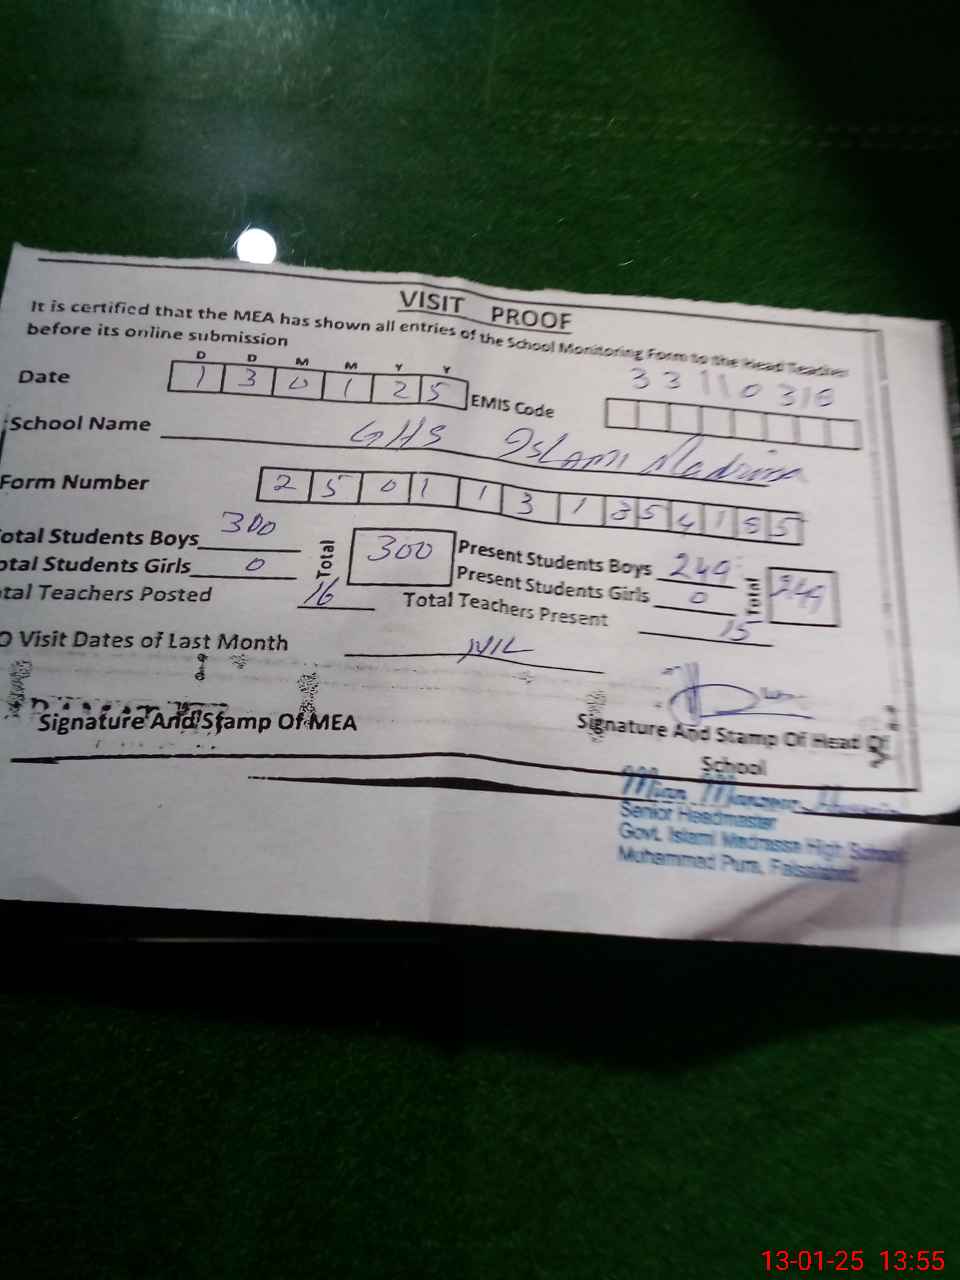 VISIT PROOF
It is certified that the MEA has shown all entries of the School Monitoring Form to the Head Teacher
before its online submission
D D M M Y Y
Date 1 3 0 1 2 5 EMIS Code 33110316
School Name GHS Islami Madrissa
Form Number 2 5 0 1 1 3 1 3 5 4 1 5 5
otal Students Boys 300 Total 300 Present Students Boys 249 Total 249
otal Students Girls 0 Present Students Girls 0
tal Teachers Posted 16 Total Teachers Present 15
O Visit Dates of Last Month NIL
Signature And Stamp Of MEA Signature And Stamp Of Head Of
School
Mian Manzoor Hussain
Senior Headmaster
Govt. Islami Madrassa High School
Muhammad Pura, Faisalabad.
13-01-25 13:55